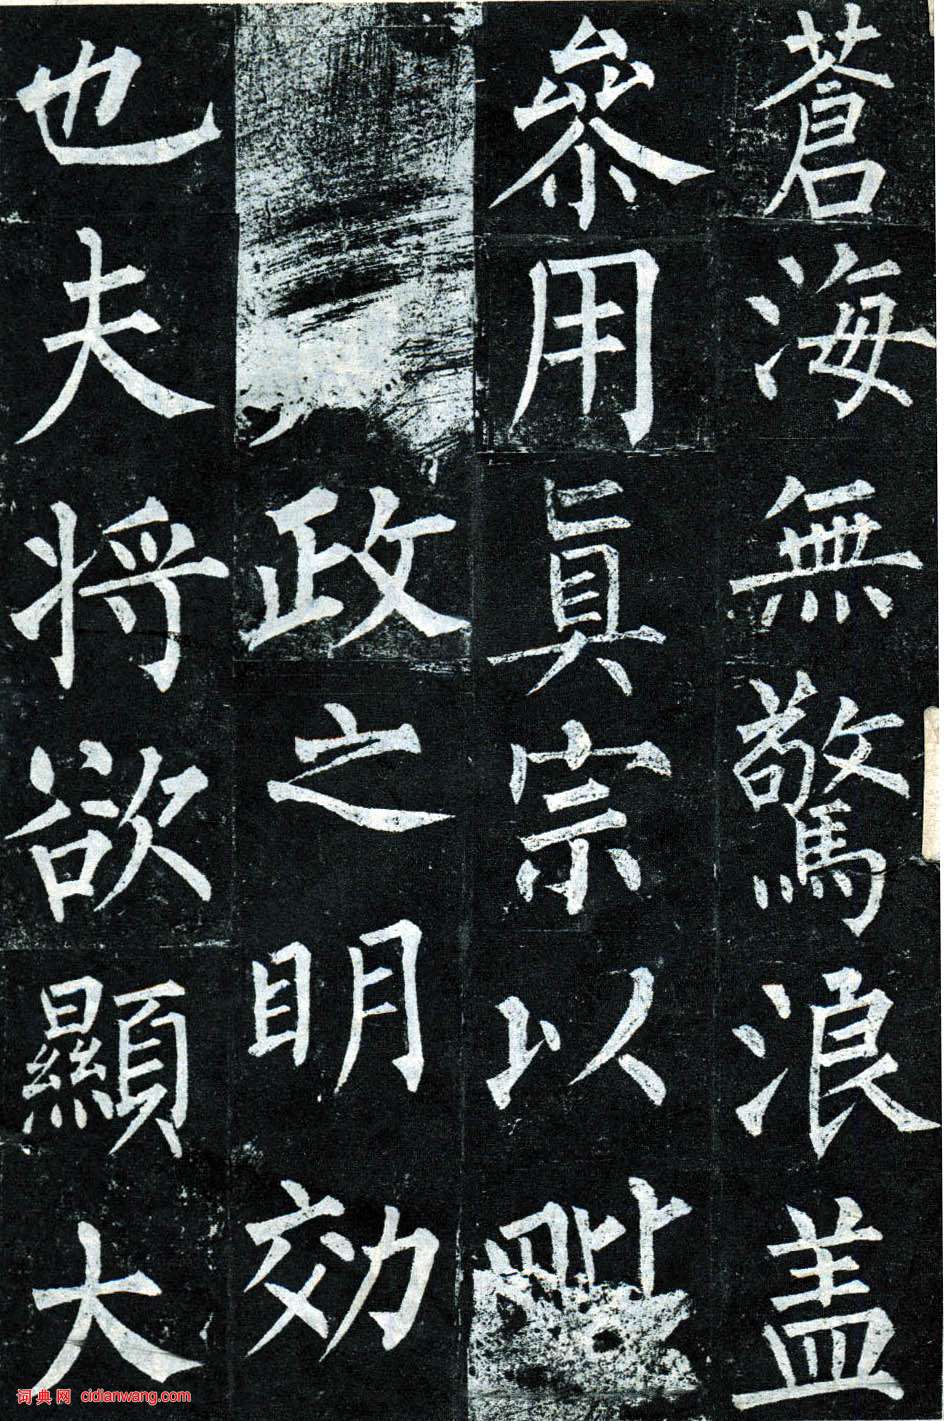 蒼海無驚浪盖
參用真宗以
政之明効
也夫將欲顯大
词典网 cidianwang.com